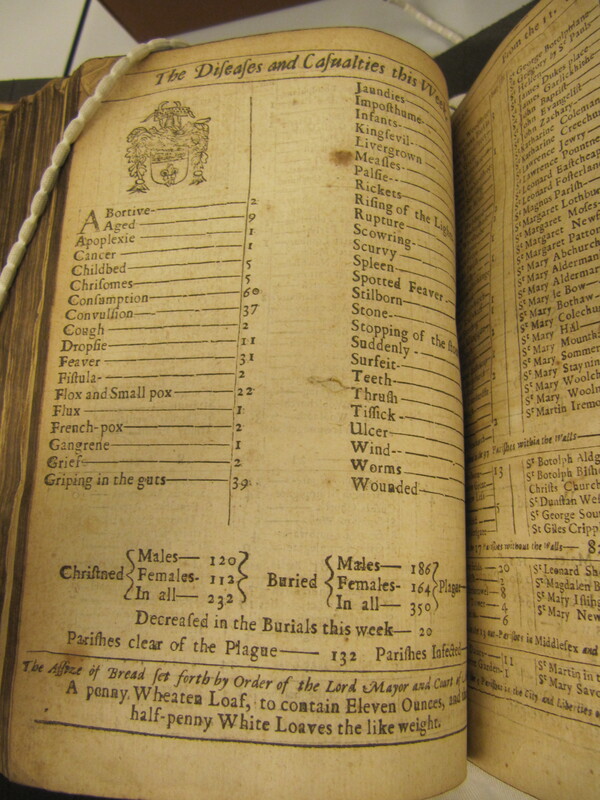 The Diſeaſes and Caſualties this Week
ABortive 2
Aged 9
Apoplexie 1
Cancer 1
Childbed 5
Chriſomes 5
Conſumption 60
Convulſion 37
Cough 2
Dropſie 11
Feaver 31
Fiſtula 2
Flox and Small pox 22
Flux 1
French-pox 2
Gangrene 1
Grief 2
Griping in the guts 39
Jaundies
Impoſthume
Infants
Kingſevil
Livergrown
Meaſles
Palſie
Rickets
Riſing of the Lights
Rupture
Scowring
Scurvy
Spleen
Spotted Feaver
Stilborn
Stone
Stopping of the
Suddenly
Surfeit
Teeth
Thruſh
Tiſſick
Ulcer
Wind
Worms
Wounded
Chriſtned Males— 120 Females- 112 In all— 232 Buried Males— 186 Females- 164 In all— 350 Plague
Decreaſed in the Burials this week— 20
Pariſhes clear of the Plague— 132 Pariſhes Infected
The Aſſize of Bread ſet forth by Order of the Lord Mayor and Court of
A penny Wheaten Loaf, to contain Eleven Ounces, and
half-penny White Loaves the like weight.
From the 11.
St George Botolphlane
St Gregory by St Pauls
St James Dukes place
St James Garlickhithe
St John Baptiſt
St John Evangeliſt
St John Zachary
St Katharine Coleman
St Katharine Creechur
St Lawrence Jewry
St Lawrence Pountne
St Leonard Eaſtcheap
St Leonard Foſterlan
St Magnus Pariſh
St Margaret Lothbur
St Margaret Moſes
St Margaret Newf
St Margaret Patton
St Mary Abchurch
St Mary Alderman
St Mary Aldermar
St Mary le Bow
St Mary Bothaw
St Mary Colechu
St Mary Hill
St Mary Mounth
St Mary Sommer
St Mary Staynin
St Mary Woolch
St Mary Wooln
St Martin Iremo
Pariſhes within the Walls
13 St Botolph Aldg
St Botolph Biſh
Chriſts Church
St Dunſtan Weſ
5 St George Sou
St Giles Cripp
Pariſhes without the Walls— 8
20 St Leonard Sh
2 St Magdalen B
8 St Mary Iſling
4 St Mary New
6
Pariſhes in Middleſex and
11 St Martin in t
1 St Mary Savo
Pariſhes in the City and Liberties